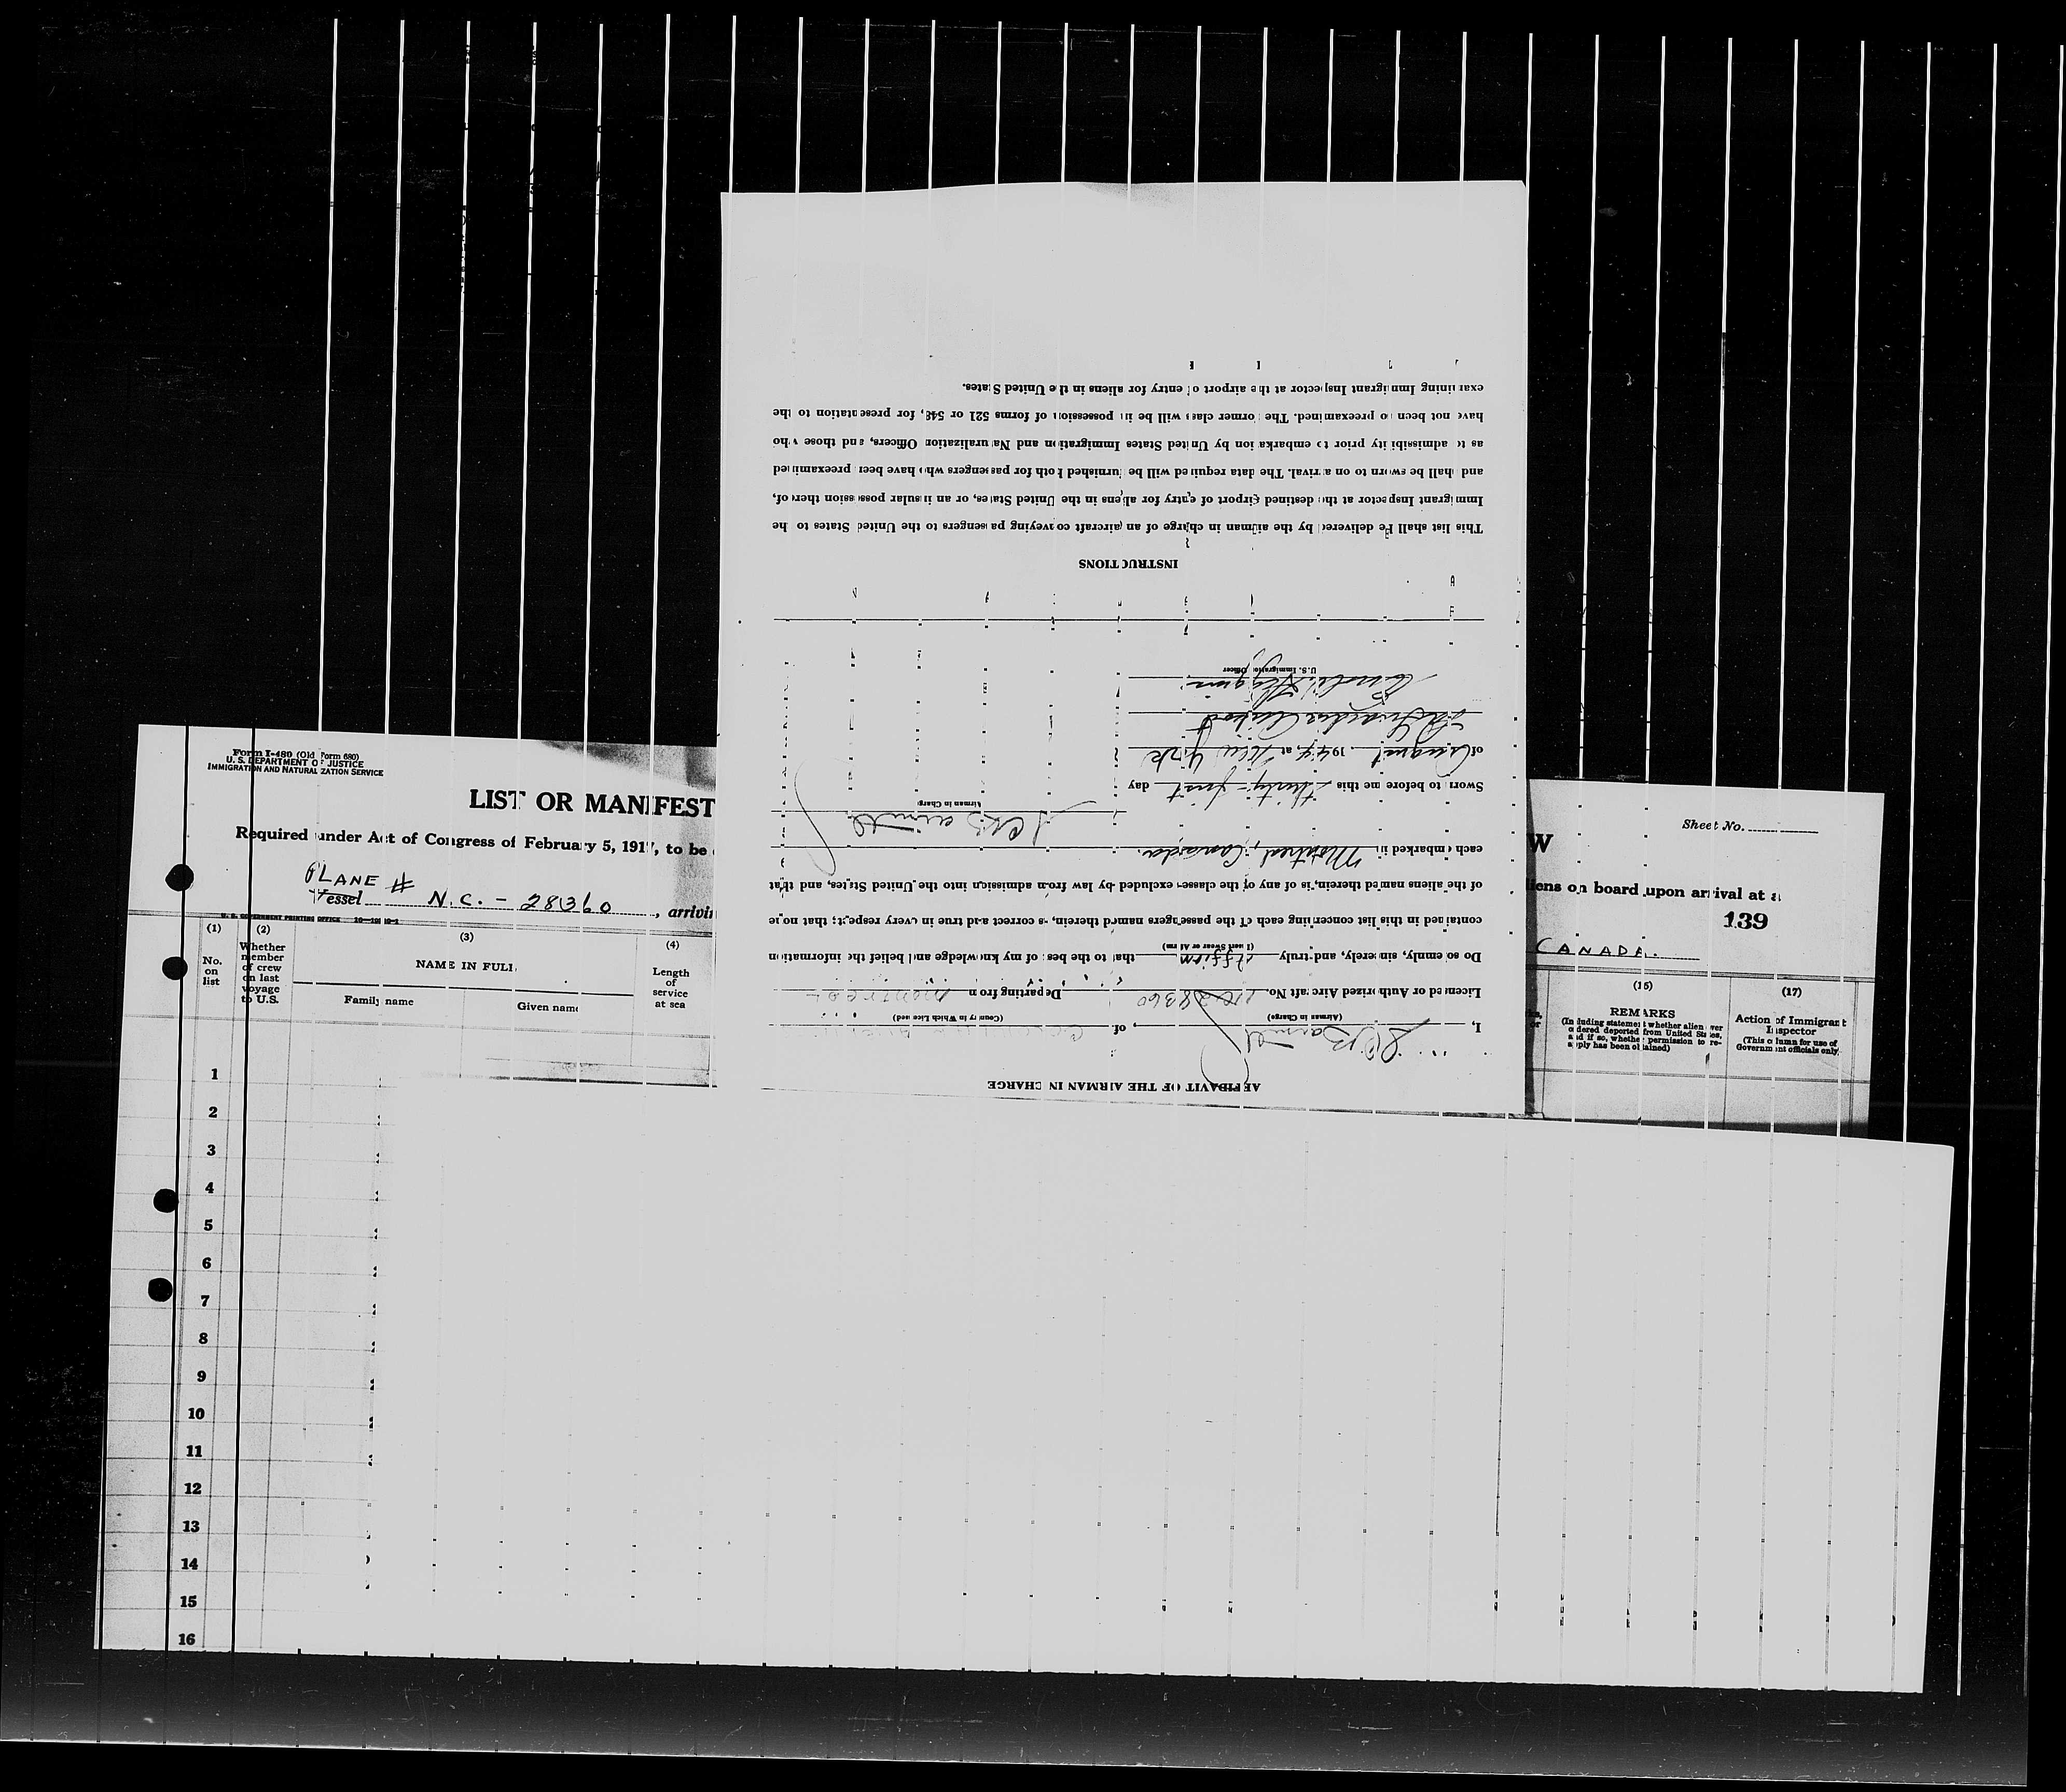 Form I-480 (Old Form 680)
U. S. DEPARTMENT OF JUSTICE
IMMIGRATION AND NATURALIZATION SERVICE
LIST OR MANIFEST
Required under Act of Congress of February 5, 1917, to be
PLANE #
Vessel N.C. - 28360, arriving
U. S. GOVERNMENT PRINTING OFFICE
(1) No. on list
(2) Whether member of crew on last voyage to U.S.
(3) NAME IN FULL
Family name
Given name
(4) Length of service at sea
1
2
3
4
5
6
7
8
9
10
11
12
13
14
15
16
AFFIDAVIT OF THE AIRMAN IN CHARGE
I, of
(Airman in Charge) (Country in Which Licensed)
Licensed or Authorized Aircraft No. NC 28360 Departing from Montreal
Do solemnly, sincerely, and truly affirm that to the best of my knowledge and belief the information
(Insert Swear or Affirm)
contained in this list concerning each of the passengers named therein, is correct and true in every respect; that none
of the aliens named therein, is of any of the classes excluded by law from admission into the United States, and that
each embarked in Montreal, Canada.
Airman in Charge
Sworn to before me this thirty-first day
of August 1944 at New York
LaGuardia Airport
U. S. Immigration Officer
INSTRUCTIONS
This list shall be delivered by the airman in charge of an aircraft conveying passengers to the United States to the
Immigrant Inspector at the destined airport of entry for aliens in the United States, or an insular possession thereof,
and shall be sworn to on arrival. The data required will be furnished both for passengers who have been preexamined
as to admissibility prior to embarkation by United States Immigration and Naturalization Officers, and those who
have not been so preexamined. The former class will be in possession of forms 521 or 548, for presentation to the
examining Immigrant Inspector at the airport of entry for aliens in the United States.
Sheet No.
W
liens on board upon arrival at a
139
CANADA.
(15)
REMARKS
(Including statement whether alien ever ordered deported from United States, and if so, whether permission to re-apply has been obtained)
(17)
Action of Immigrant Inspector
(This column for use of Government officials only)